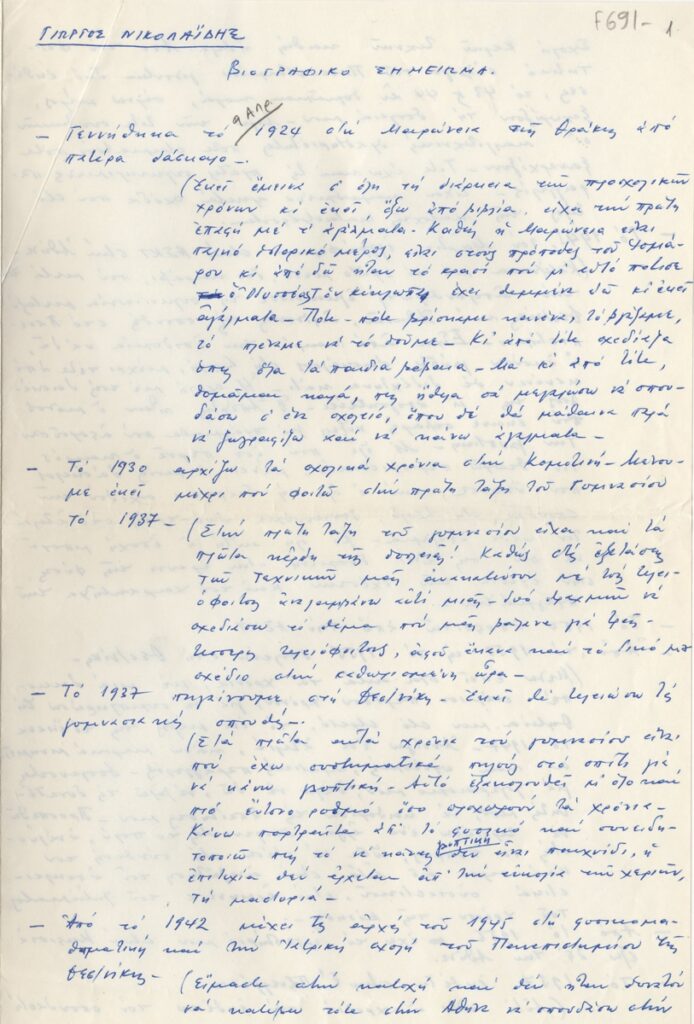 F691- 1
ΓΙΩΡΓΟΣ ΝΙΚΟΛΑΪΔΗΣ
ΒΙΟΓΡΑΦΙΚΟ ΣΗΜΕΙΩΜΑ.
9 ΑΠΡ
– Γεννήθηκα τό 1924 στή Μαρώνεια τῆς Θράκης ἀπό
πατέρα δάσκαλο –
(Ἐκεῖ ἔμεινα σ' ὅλη τή διάρκεια τῶν προσχολικῶν
χρόνων κι ἐκεῖ, ἔξω ἀπό βιβλία, εἶχα τήν πρώτη
ἐπαφή μέ τ' ἀγάλματα. Καθώς ἡ Μαρώνεια εἶναι
παλιό ἱστορικό μέρος, εἶναι στούς πρόποδες τοῦ Ἰσμά-
ρου κι ἀπό δῶ ἦταν τό κρασί πού μ' αὐτό πότισε
ὁ Ὀδυσσέας τόν κύκλωπα, ἔχει θαμμένα δῶ κι ἐκεῖ
ἀγάλματα – Πότε - πότε βρίσκαμε κανένα, τό βγάζαμε,
τό πλέναμε νά τό δοῦμε – Κι ἀπό τότε σχεδίαζα
ὅπως ὅλα τά παιδιά βέβαια – Μά κι ἀπό τότε,
θυμᾶμαι καλά, πώς ἤθελα σά μεγαλώσω νά σπου-
δάσω σ' ἕνα σχολειό, ὅπου θά μάθαινα
νά ζωγραφίζω καί νά κάνω ἀγάλματα –
– Τό 1930 ἀρχίζω τά σχολικά χρόνια στήν Κομοτινή – Μένου-
με ἐκεῖ μέχρι πού φοιτῶ στήν πρώτη τάξη τοῦ Γυμνασίου
τό 1937 – (Στήν πρώτη τάξη τοῦ γυμνασίου εἶχα καί τά
πρῶτα κέρδη τῆς δουλειᾶς! Καθώς στίς ἐξετάσεις
τῶν τεχνικῶν μᾶς ἀνακατεύουν μέ τούς τελει-
όφοιτους ἀναλαμβάνω ἀντί μιᾶς - δυό δραχμῶν νά
σχεδιάσω τό θέμα πού μᾶς βάζανε γιά τρεῖς-
τέσσερις τελειόφοιτους, ἀφοῦ ἔκανα καί τό δικό μου
σχέδιο στήν καθωρισμένη ὥρα –
– Τό 1937 πηγαίνουμε στή Θεσ/νίκη – Ἐκεῖ θά τελειώσω τίς
γυμνασιακές σπουδές –
(Στά πρῶτα αὐτά χρόνια τοῦ γυμνασίου εἶναι
πού ἔχω συστηματικά πηλούς στό σπίτι γιά
νά κάνω γλυπτική – Αὐτό ἐξακολουθεῖ μ' ὅλο καί
πιό ἔντονο ρυθμό ὅσο προχωροῦν τά χρόνια –
Κάνω πορτραῖτα ἀπ' τό φυσικό καί συνειδη-
τοποιῶ πώς τό νά κάνεις γλυπτική δέν εἶναι παιχνίδι, ἡ
ἐπιτυχία δέν ἔρχεται ἀπ' τήν εὐκολία τῶν χεριῶν,
τή μαστοριά –
– Ἀπό τό 1942 μέχρι τίς ἀρχές τοῦ 1945 στή φυσικομα-
θηματική καί τήν Ἰατρική σχολή τοῦ Πανεπιστημίου τῆς
Θεσ/νίκης – (Εἴμαστε στήν κατοχή καί δέν ἦταν δυνατόν
νά κατέβω τότε στήν Ἀθήνα νά σπουδάσω στήν